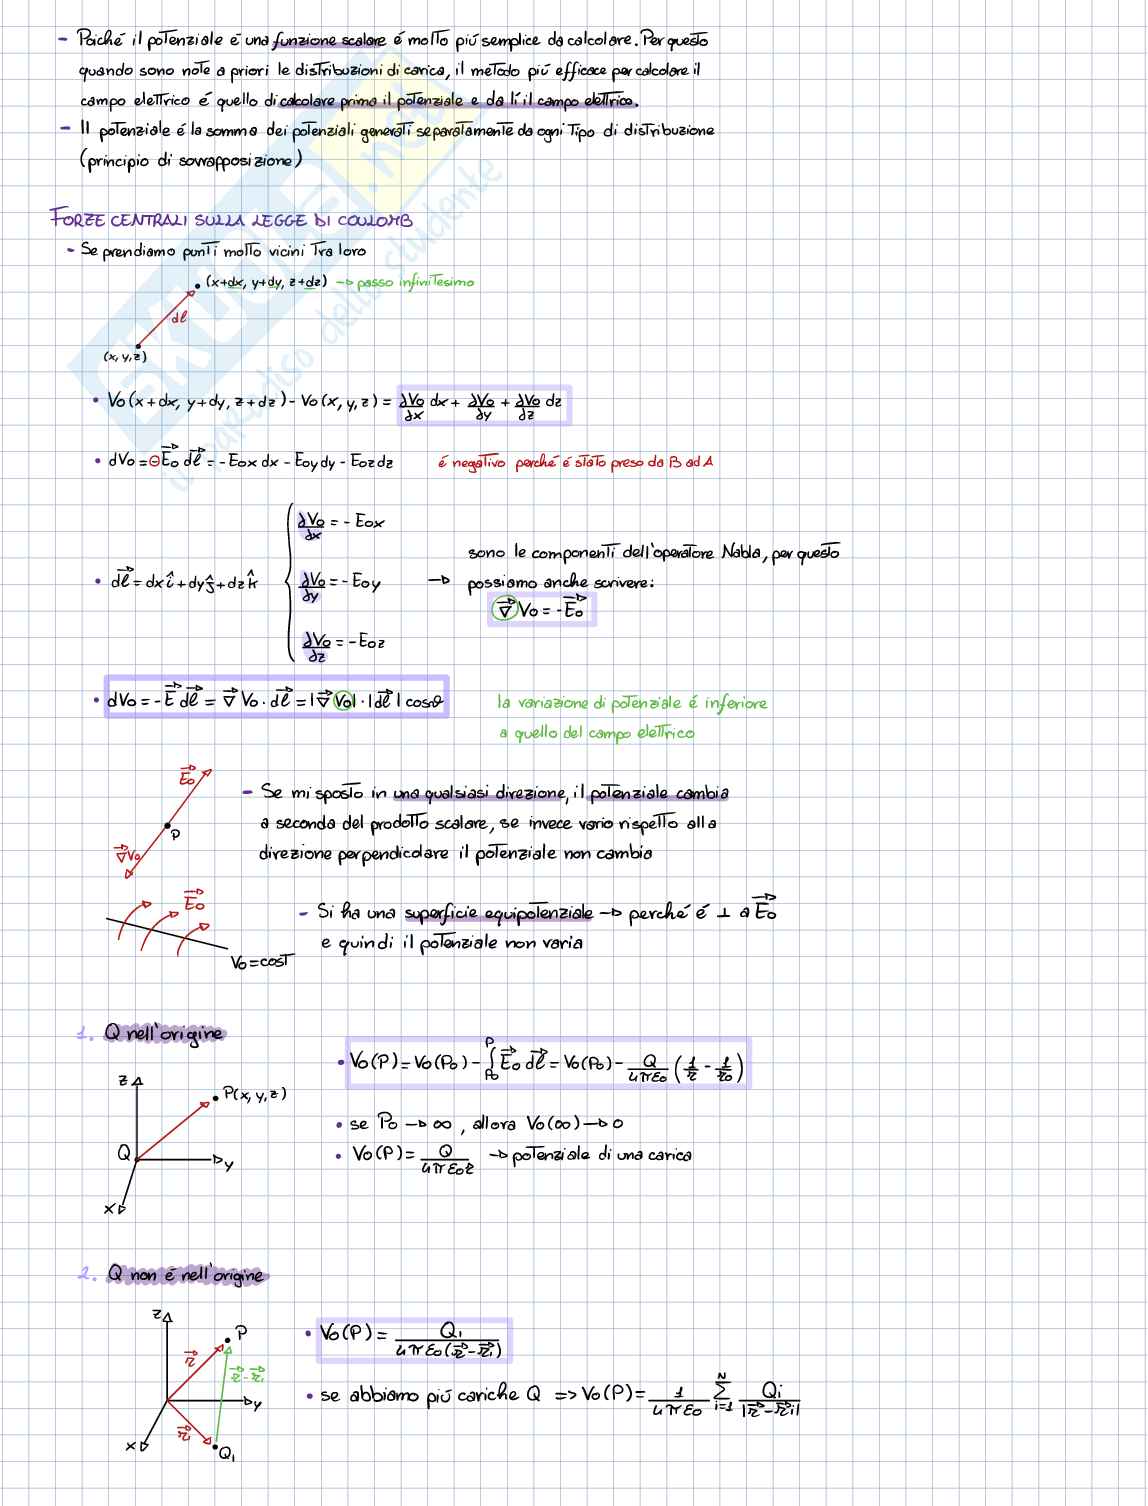 - Poiché il potenziale é una funzione scalare é molto piú semplice da calcolare. Per questo
quando sono note a priori le distribuzioni di carica, il metodo piú efficace per calcolare il
campo elettrico é quello di calcolare prima il potenziale e da lí il campo elettrico.
- Il potenziale é la somma dei potenziali generati separatamente da ogni tipo di distribuzione
(principio di sovrapposizione)
SKUOLA.net
il paradiso dello studente
FORZE CENTRALI SULLA LEGGE DI COULOMB
- Se prendiamo punti molto vicini tra loro
(x+dx, y+dy, z+dz) → passo infinitesimo
dl
(x, y, z)
• V₀(x+dx, y+dy, z+dz) - V₀(x, y, z) = ∂V₀/∂x dx + ∂V₀/∂y + ∂V₀/∂z dz
• dV₀ = -E⃗₀ dl⃗ = -E₀x dx - E₀y dy - E₀z dz é negativo perché é stato preso da B ad A
∂V₀/∂x = -E₀x
sono le componenti dell'operatore Nabla, per questo
• dl⃗ = dx î + dy ĵ + dz k̂ { ∂V₀/∂y = -E₀y → possiamo anche scrivere:
∇⃗ V₀ = -E⃗₀
∂V₀/∂z = -E₀z
• dV₀ = -E⃗ dl⃗ = ∇⃗ V₀ · dl⃗ = |∇⃗ V₀| · |dl⃗| cosϑ la variazione di potenziale é inferiore
a quello del campo elettrico
E⃗₀
P
∇⃗V₀
- Se mi sposto in una qualsiasi direzione, il potenziale cambia
a seconda del prodotto scalare, se invece vario rispetto alla
direzione perpendicolare il potenziale non cambia
E⃗₀
- Si ha una superficie equipotenziale → perché é ⊥ a E⃗₀
e quindi il potenziale non varia
V₀ = cost
1. Q nell'origine
• V₀(P) = V₀(P₀) - ∫_{P₀}^{P} E⃗₀ dl⃗ = V₀(P₀) - Q/4πε₀ (1/r - 1/r₀)
z
P(x, y, z)
Q
y
x
• se P₀ → ∞, allora V₀(∞) → 0
• V₀(P) = Q/4πε₀r → potenziale di una carica
2. Q non é nell'origine
z
P
r⃗
r⃗-r⃗₁
y
r⃗₁
x
Q₁
• V₀(P) = Q₁/4πε₀(r⃗-r⃗₁)
• se abbiamo piú cariche Q => V₀(P) = 1/4πε₀ ∑_{i=1}^{N} Qi/|r⃗-r⃗i|